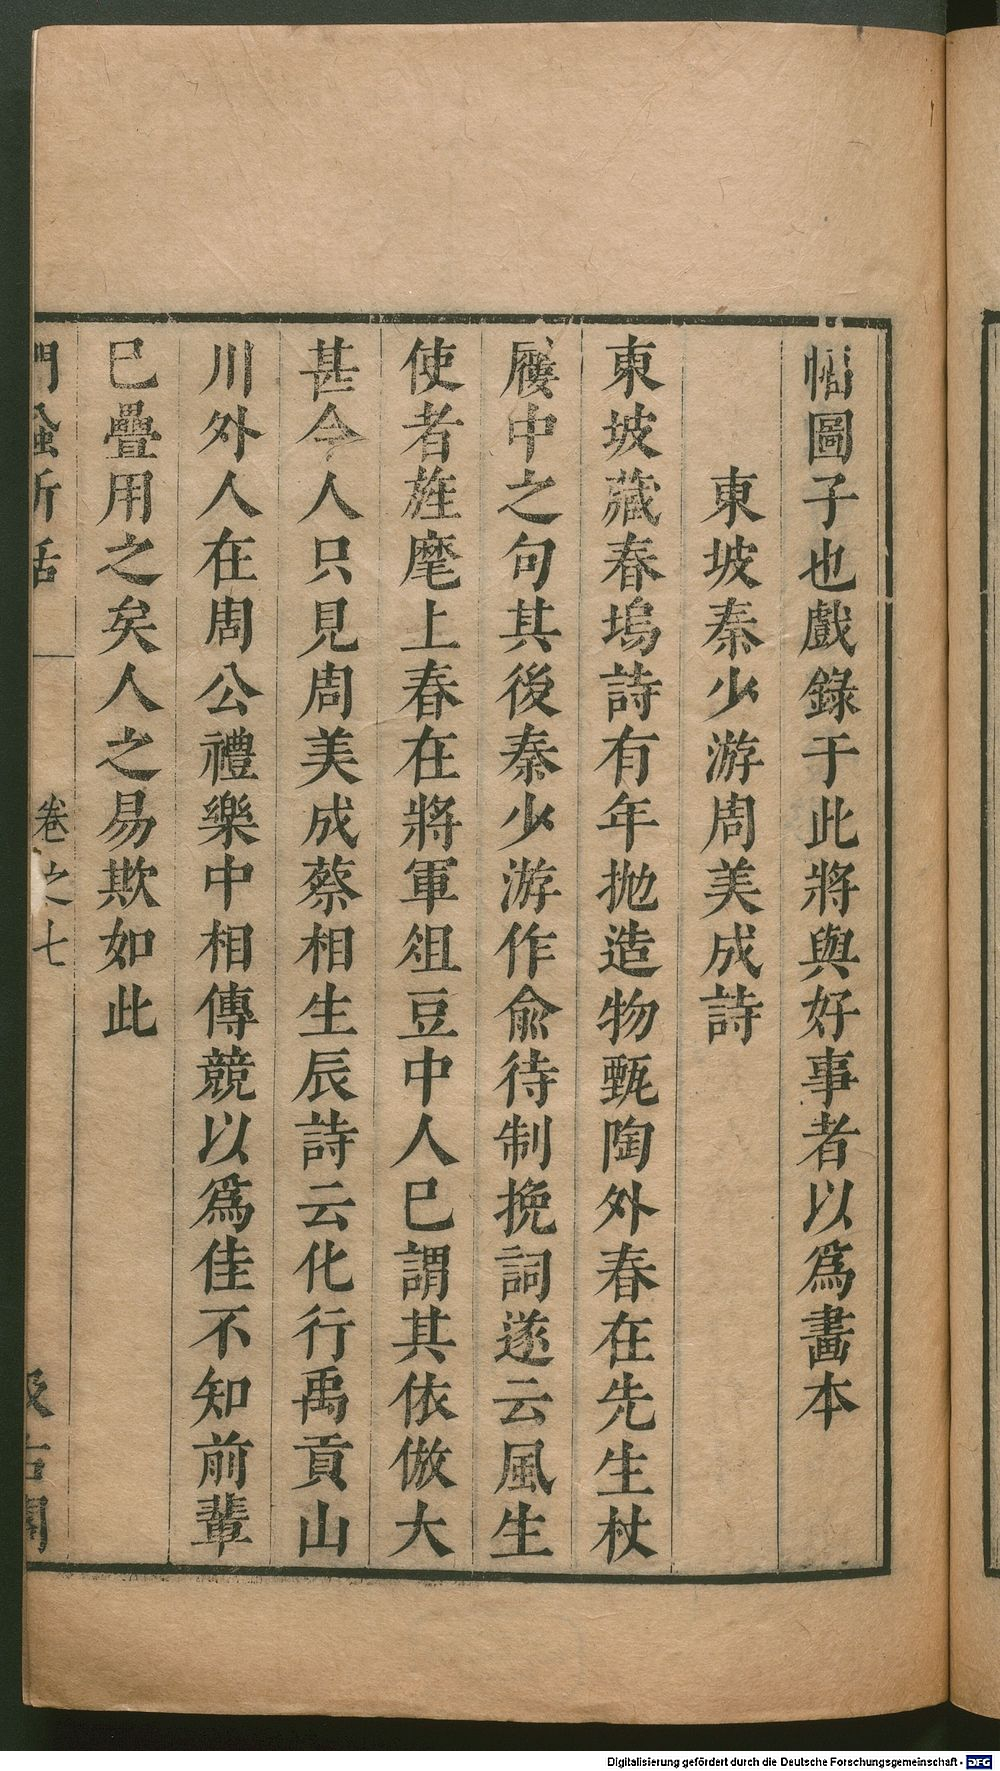 幅圖子也戲錄于此將與好事者以爲畫本
東坡秦少游周美成詩
東坡藏春塢詩有年抛造物甄陶外春在先生杖
屨中之句其後秦少游作俞待制挽詞遂云風生
使者旌麾上春在將軍俎豆中人已謂其依倣大
甚今人只見周美成蔡相生辰詩云化行禹貢山
川外人在周公禮樂中相傳競以爲佳不知前輩
已疊用之矣人之易欺如此
門蝨新話 卷之七 汲古閣
Digitalisierung gefördert durch die Deutsche Forschungsgemeinschaft - DFG